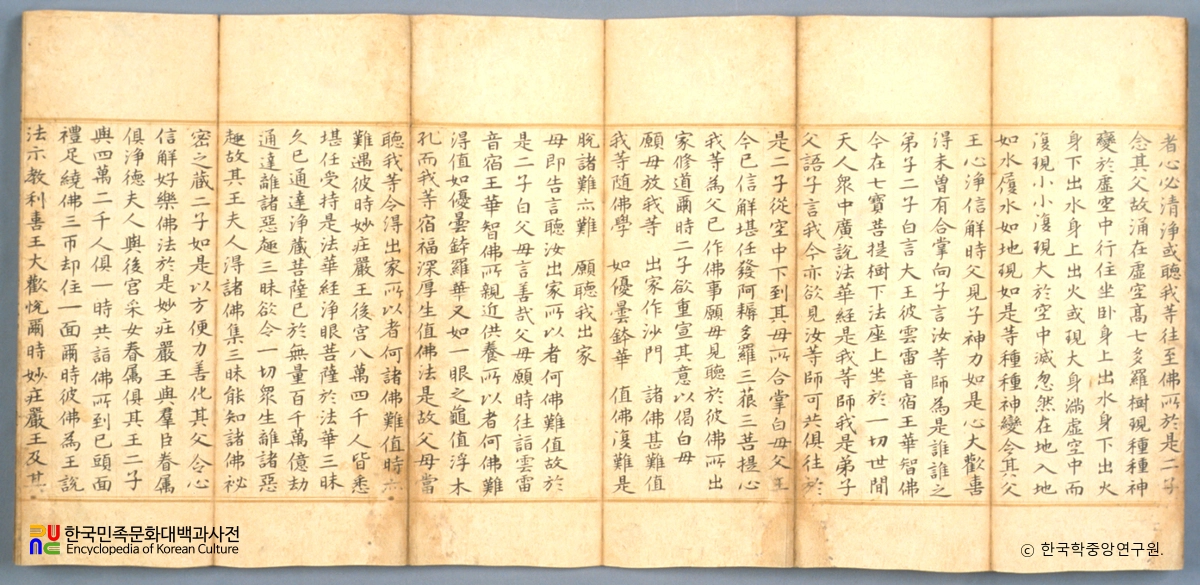 者心必清淨或聽我等往至佛所於是二子
念其父故涌在虛空高七多羅樹現種種神
變於虛空中行住坐卧身上出水身下出火
身下出水身上出火或現大身滿虛空中而
復現小小復現大於空中滅忽然在地入地
如水履水如地現如是等種種神變令其父
王心淨信解時父見子神力如是心大歡喜
得未曾有合掌向子言汝等師為是誰誰之
弟子二子白言大王彼雲雷音宿王華智佛
今在七寶菩提樹下法座上坐於一切世間
天人眾中廣說法華經是我等師我是弟子
父語子言我今亦欲見汝等師可共俱往於
是二子從空中下到其母所合掌白母父王
今已信解堪任發阿耨多羅三藐三菩提心
我等為父已作佛事願母見聽於彼佛所出
家修道爾時二子欲重宣其意以偈白母
願母放我等 出家作沙門 諸佛甚難值
我等隨佛學 如優曇鉢華 值佛復難是
脫諸難亦難 願聽我出家
母即告言聽汝出家所以者何佛難值故於
是二子白父母言善哉父母願時往詣雲雷
音宿王華智佛所親近供養所以者何佛難
得值如優曇鉢羅華又如一眼之龜值浮木
孔而我等宿福深厚生值佛法是故父母當
聽我等令得出家所以者何諸佛難值時亦
難遇彼時妙莊嚴王後宮八萬四千人皆悉
堪任受持是法華經淨眼菩薩於法華三昧
久已通達淨藏菩薩已於無量百千萬億劫
通達離諸惡趣三昧欲令一切眾生離諸惡
趣故其王夫人得諸佛集三昧能知諸佛秘
密之藏二子如是以方便力善化其父令心
信解好樂佛法於是妙莊嚴王與羣臣眷屬
俱淨德夫人與後宮采女眷屬俱其王二子
與四萬二千人俱一時共詣佛所到已頭面
禮足繞佛三帀却住一面爾時彼佛為王說
法示教利喜王大歡悅爾時妙莊嚴王及其
한국민족문화대백과사전
Encyclopedia of Korean Culture
ⓒ 한국학중앙연구원.